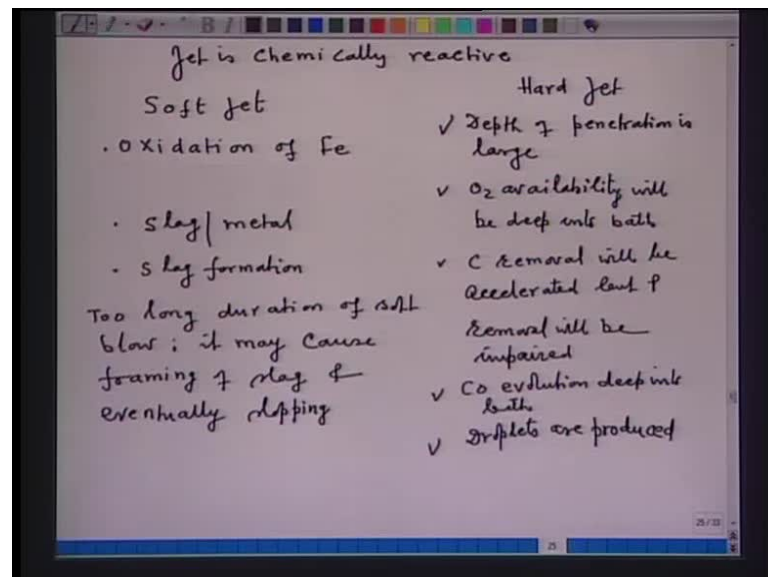 Jet is chemically reactive
Soft Jet
. Oxidation of Fe
. Slag / metal
. Slag formation
Too long duration of soft
blow ; it may cause
foaming of slag &
eventually slopping
Hard Jet
✓ Depth of penetration is
large
✓ O2 availability will
be deep into bath
✓ C removal will be
accelerated but P
removal will be
impaired
✓ CO evolution deep into
bath
✓ Droplets are produced
25/33
25